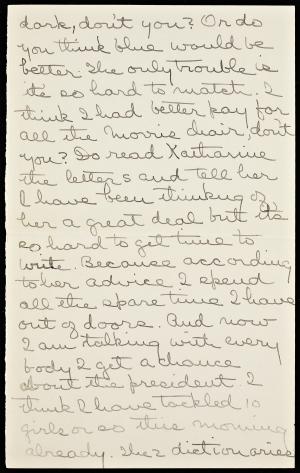 dark, don't you? Or do
you think blue would be
better. The only trouble is
it's so hard to match. I
think I had better pay for
all the Morris chair, don't
you? Do read Katharine
the letters and tell her
I have been thinking of
her a great deal but its
so hard to get time to
write. Because according
to her advice I spend
all the spare time I have
out of doors. And now
I am talking with every
body I get a chance
about the president. I
think I have tackled 10
girls or so this morning
already. The 2 dictionaries